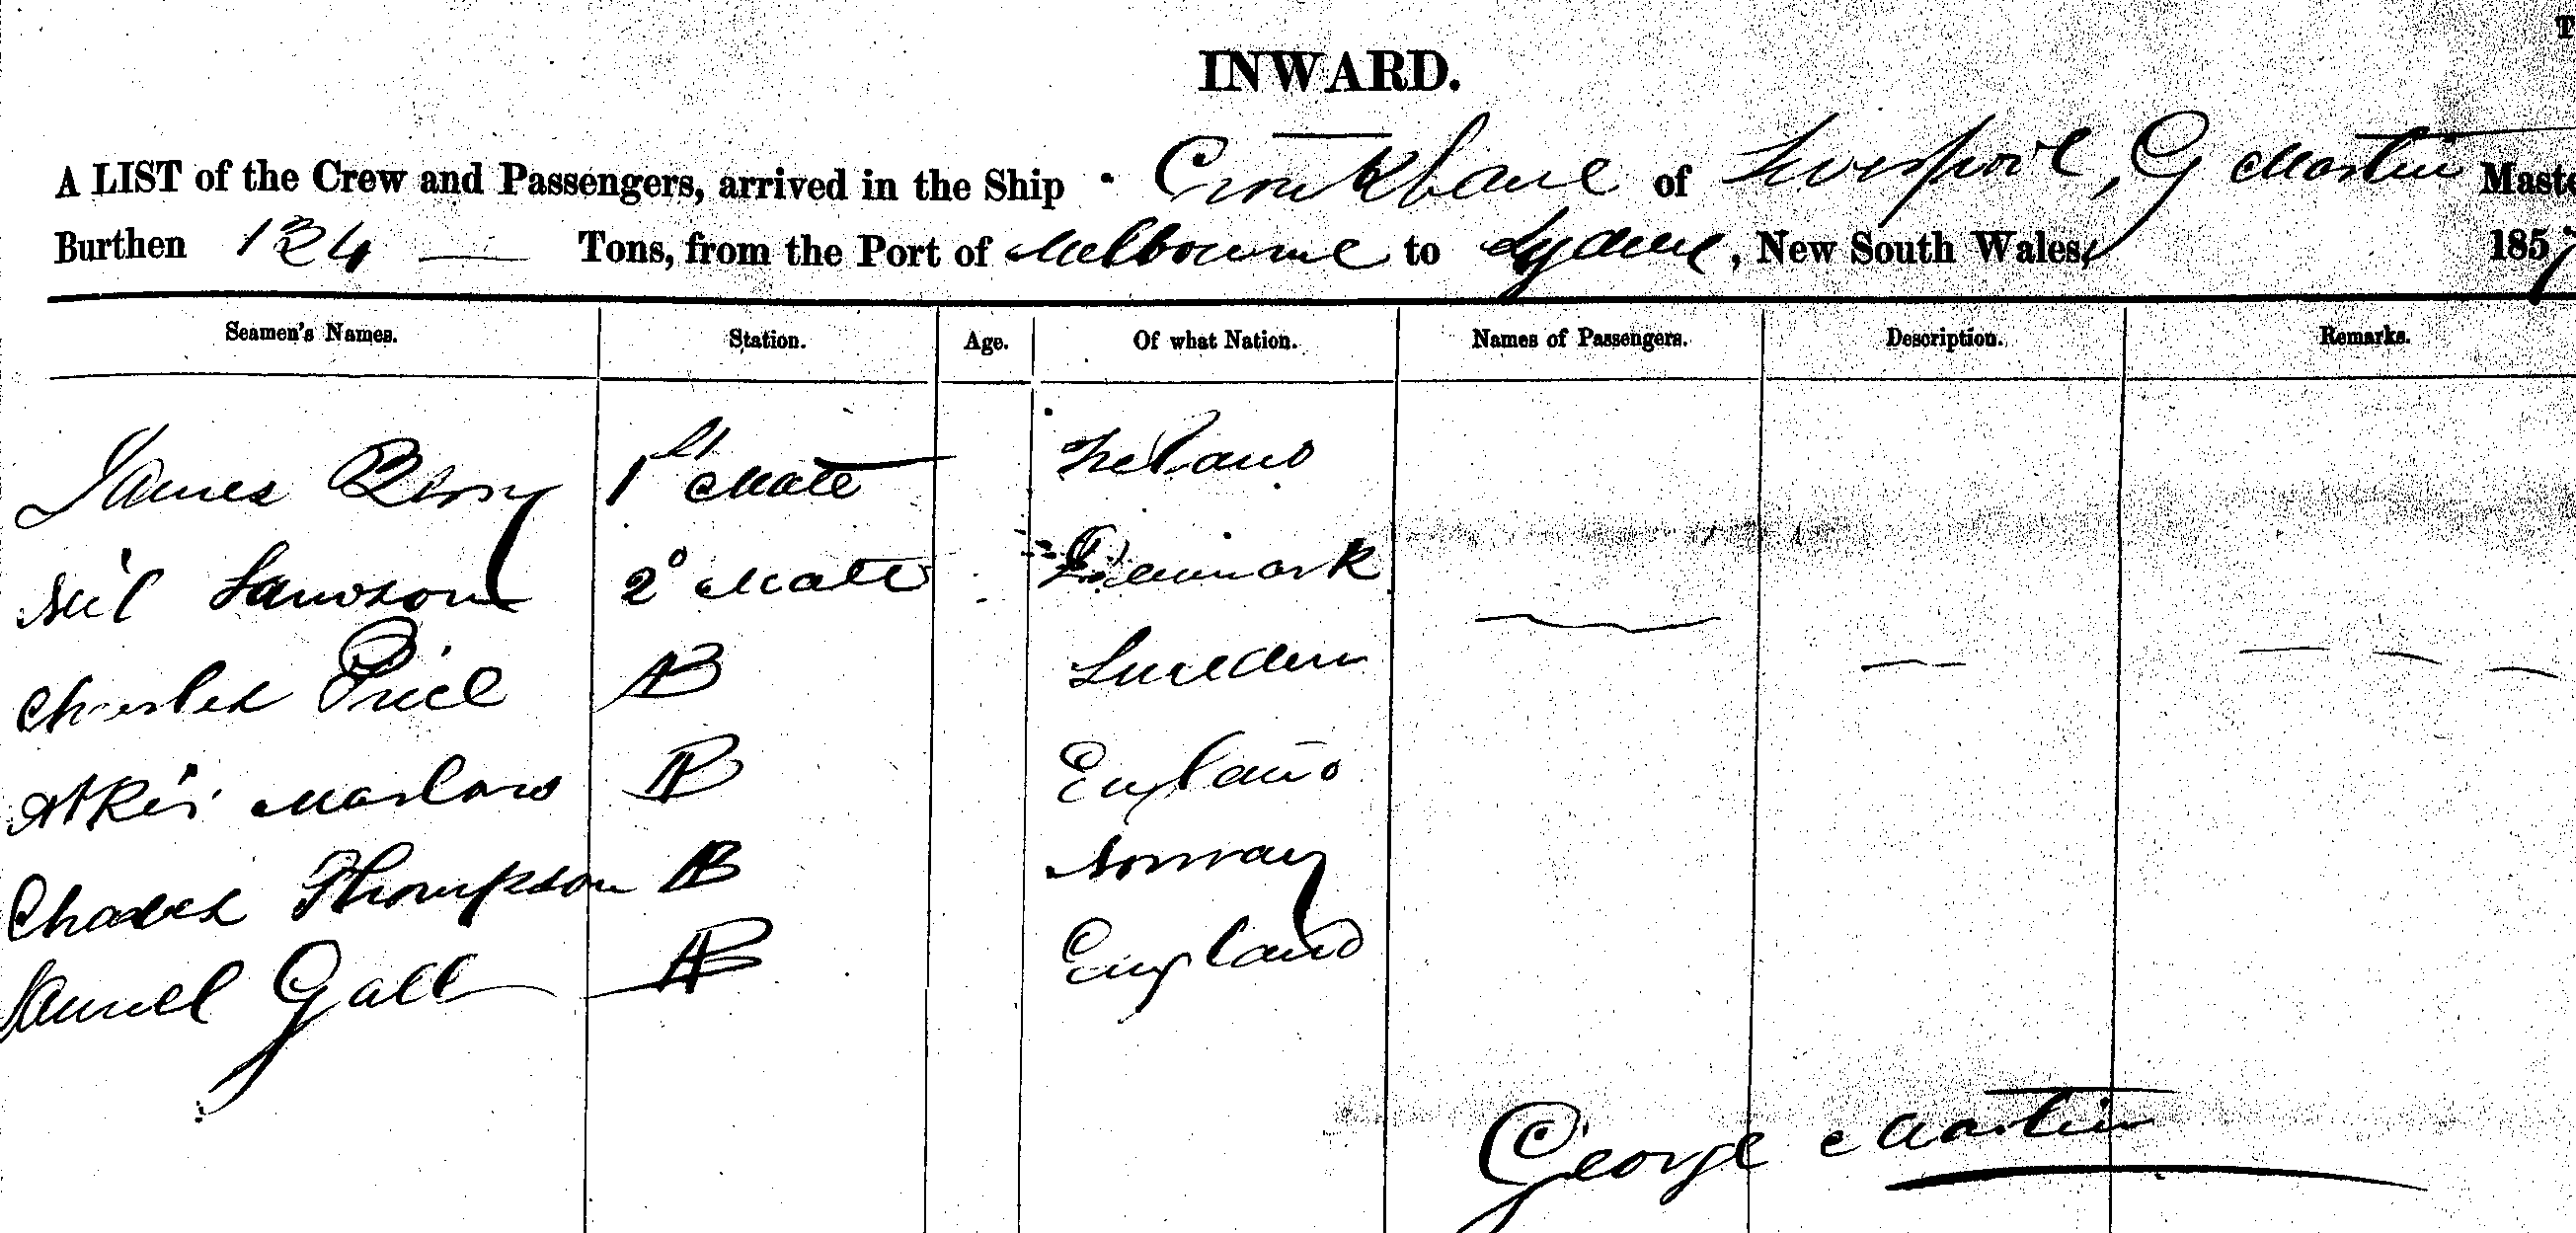 INWARD.
A LIST of the Crew and Passengers, arrived in the Ship Cronkbane of Liverpool, G Martin Maste
Burthen 124 Tons, from the Port of Melbourne to Sydney, New South Wales, 1857
Seamen's Names. Station. Age. Of what Nation. Names of Passengers. Description. Remarks.
James Berry 1st Mate Ireland
Neil Lawson 2d Mate Denmark
Charles Price AB Sweden
Marlow AB England
Charles Thompson AB Norway
Samuel Gall AB England
George Martin